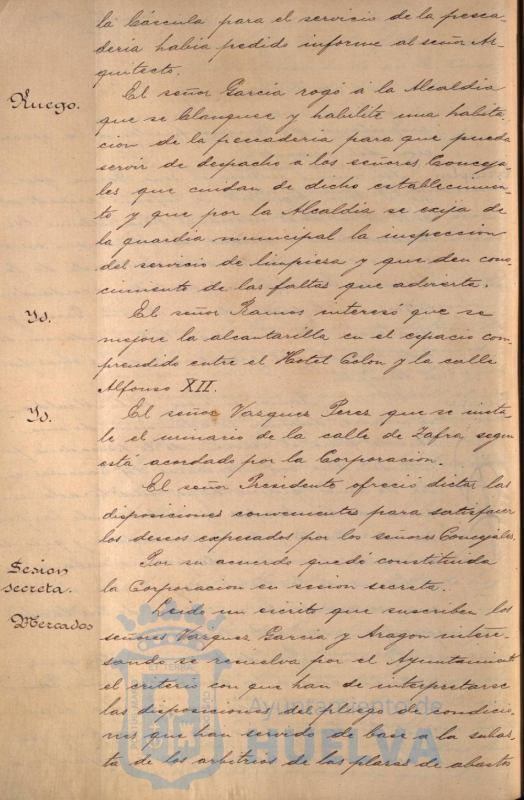 la Báscula para el servicio de la pesca-
deria habia pedido informe al señor Ar-
quitecto.
Ruego.
El señor Garcia rogó á la Alcaldia
que se blanquee y habilite una habita-
cion de la pescaderia para que pueda
servir de despacho á los señores Conceja-
les que cuidan de dicho establecimien-
to y que por la Alcaldia se exija de
la guardia municipal la inspeccion
del servicio de limpiesa y que den cono-
cimiento de las faltas que advierta.
Yd.
El señor Ramos interesó que se
mejore la alcantarilla en el espacio com-
prendido entre el Hotel Colon y la calle
Alfonso XII.
Yd.
El señor Vasquez Perez que se insta-
le el urinario de la calle de Zafra segun
está acordado por la Corporacion.
El señor Presidente ofreció dictar las
disposiciones convenientes para satisfacer
los deseos expesados por los señores Concejales.
Sesion
secreta.
Por su acuerdo quedó constituida
la Corporacion en sesion secreta.
Mercados
Leido un escrito que suscriben los
señores Vazquez Garcia y Aragon intere-
sando se resuelva por el Ayuntamiento
el criterio con que han de interpretarse
las disposiciones del pliego de condicio-
nes que han servido de base a la subas-
ta de los arbitrios de las plazas de abastos
Ayuntamiento de
HUELVA